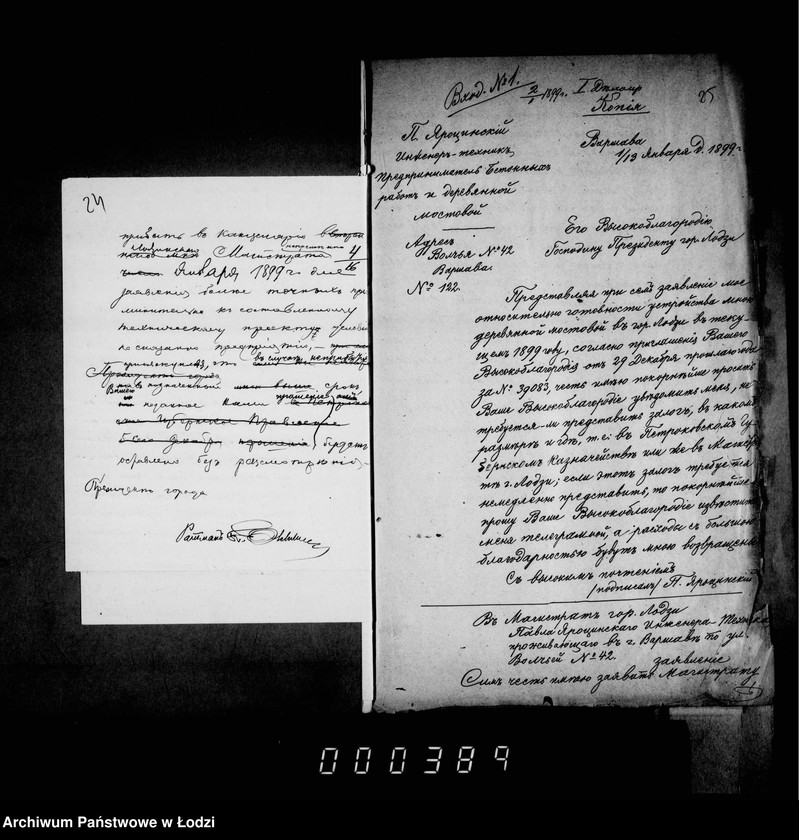 24
прибыть въ Канцелярію
Магистрата 4/16
Января 1899 г. для
заявленія болѣе точныхъ
къ составленному
техническому проекту
въ случаѣ
въ назначенный срокъ
прошеніе
поданное Вами
будетъ
оставлено безъ разсмотрѣнія.
Президентъ города
Ратманъ
25
Вход. № 1.
2/I 1899 г.
Копія
П. Яроцинскій
Инженеръ-техникъ
Предприниматель Бетонныхъ
работъ и деревянной
мостовой
Адресъ
Волчья № 42
Варшава.
№ 122.
Варшава
1/13 Января д. 1899 г.
Его Высокоблагородію
Господину Президенту гор. Лодзи
Представляя при семъ заявленіе мое
относительно готовности устройства мною
деревянной мостовой въ гор. Лодзи въ теку-
щемъ 1899 году, согласно приглашенія Вашего
Высокоблагородія отъ 29 Декабря прошлаго года
за № 39083, честь имѣю покорнѣйше просить
Ваше Высокоблагородіе увѣдомить меня, не
требуется-ли представить залогъ, въ какомъ
размѣрѣ и гдѣ, т. е: въ Петроковскомъ Гу-
бернскомъ Казначействѣ или же въ Магистра-
тѣ г. Лодзи; если этотъ залогъ требуется
немедленно представить, то покорнѣйше
прошу Ваше Высокоблагородіе извѣстить
меня телеграммой, а расходы съ большою
благодарностью будутъ мною возвращены
Съ высокимъ почтеніемъ
/подписалъ/ П. Яроцинскій
Въ Магистратъ гор. Лодзи
Павла Яроцинскаго Инженера-Техника
проживающаго въ г. Варшавѣ по ул.
Волчьей № 42.
заявленіе
Симъ честь имѣю заявить Магистрату
000389
Archiwum Państwowe w Łodzi